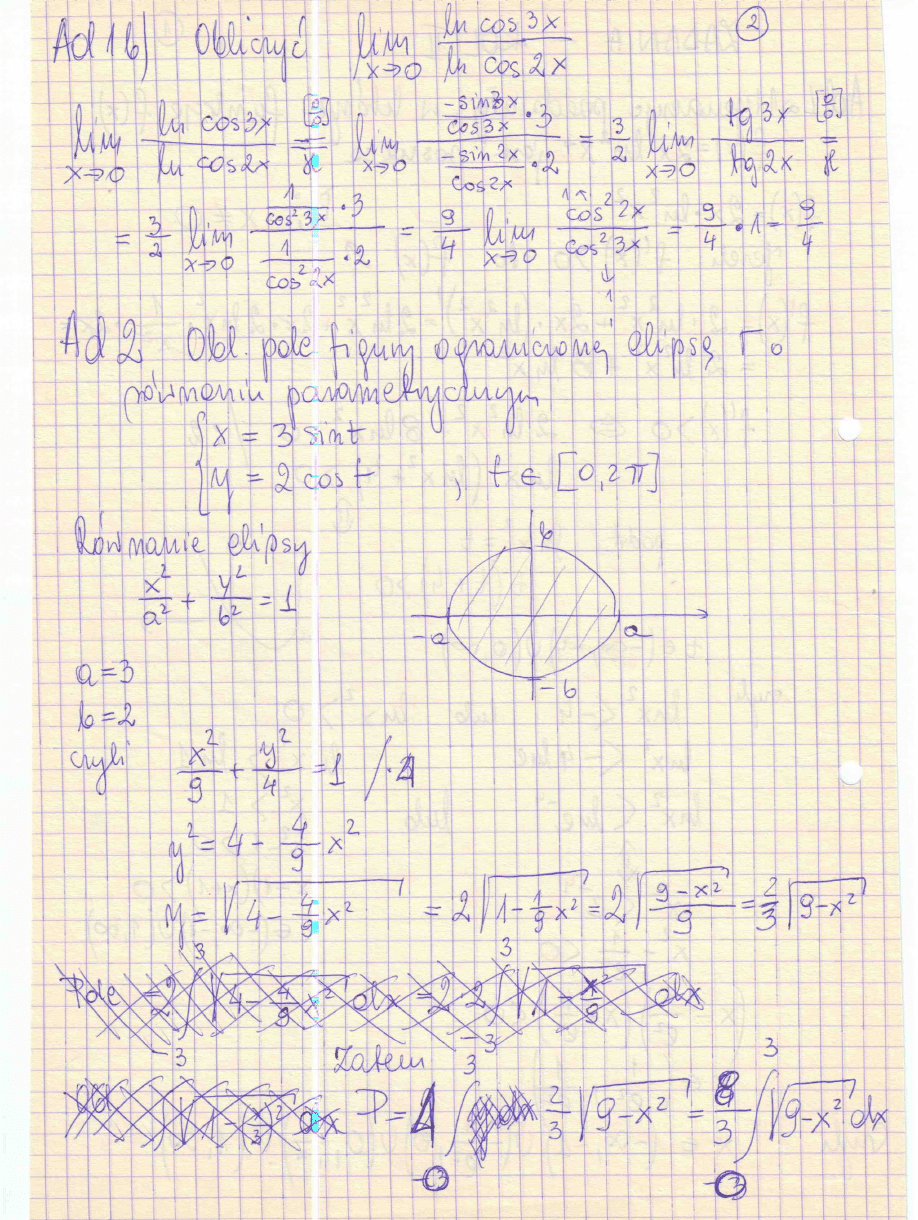 Ad 1b) Obliczyć lim x→0 ln cos3x / ln cos2x ②
lim x→0 ln cos3x / ln cos2x =[0/0] H lim x→0 (-sin3x/cos3x · 3) / (-sin2x/cos2x · 2) = 3/2 lim x→0 tg3x / tg2x =[0/0] H
= 3/2 lim x→0 (1/cos²3x · 3) / (1/cos²2x · 2) = 9/4 lim x→0 cos²2x (→1) / cos²3x (→1) = 9/4 · 1 = 9/4
Ad 2 Obl. pole figury ograniczonej elipsą Γ o
równaniu parametrycznym
{ x = 3 sint
{ y = 2 cost , t ∈ [0, 2π]
Równanie elipsy
x²/a² + y²/b² = 1
b
-a a
-b
a = 3
b = 2
czyli x²/9 + y²/4 = 1 / ·4
y² = 4 - 4/9 x²
y = √(4 - 4/9 x²) = 2√(1 - 1/9 x²) = 2√((9-x²)/9) = 2/3 √(9-x²)
Pole = 2 ∫_{-3}^{3} √(4 - 4/9 x²) dx = 2·2 ∫_{-3}^{3} √(1 - x²/9) dx
Zatem
√(1 - (x/3)²) dx P = 4 ∫_0^3 2/3 √(9-x²) = 8/3 ∫_0^3 √(9-x²) dx